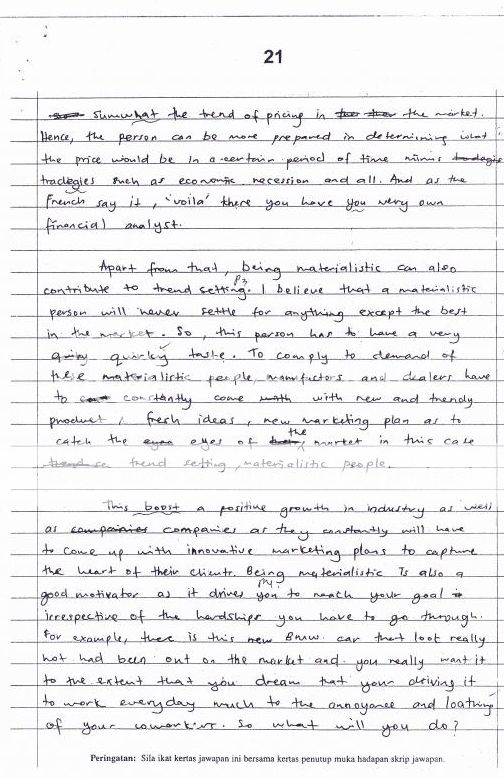 21
sumwhat the trend of pricing in the market.
Hence, the person can be more prepared in determining what
the price would be in a certain period of time minus
tradegies such as economic recession and all. And as the
French say it, 'voila' there you have you very own
financial analyst.
Apart from that, being materialistic can also
contribute to trend setting. P3 I believe that a materialistic
person will never settle for anything except the best
in the market. So, this person has to have a very
quirky taste. To comply to demand of
these materialistic people, manufactors and dealers have
to constantly come with new and trendy
product, fresh ideas, new marketing plan as to
catch the eyes of the market in this case
trend setting, materialistic people.
This boost a positive growth in industry as well
as companies as they constantly will have
to come up with innovative marketing plans to capture
the heart of their clients. Being materialistic is also a
good motivator as it drives you to reach your goal
irrespective of the hardships you have to go through.
For example, there is this new BMW car that look really
hot had been out on the market and you really want it
to the extent that you dream that your driving it
to work everyday much to the annoyance and loathing
of your coworker. So what will you do?
Peringatan: Sila ikat kertas jawapan ini bersama kertas penutup muka hadapan skrip jawapan.